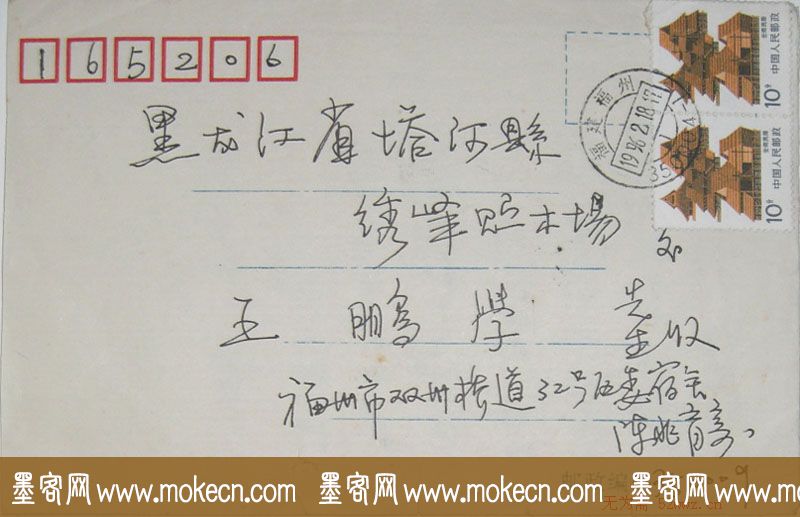 165206
中国人民邮政
10分
中国人民邮政
10分
福建福州
1996.2.18.17
黑龙江省塔河縣
绣峰贮木場
王鹏學 先生收
福州市双州桥道32号区委宿舍
陈兆育
墨客网 www.mokecn.com 墨客网 www.mokecn.com 墨客网 www.mokecn.com
邮政编